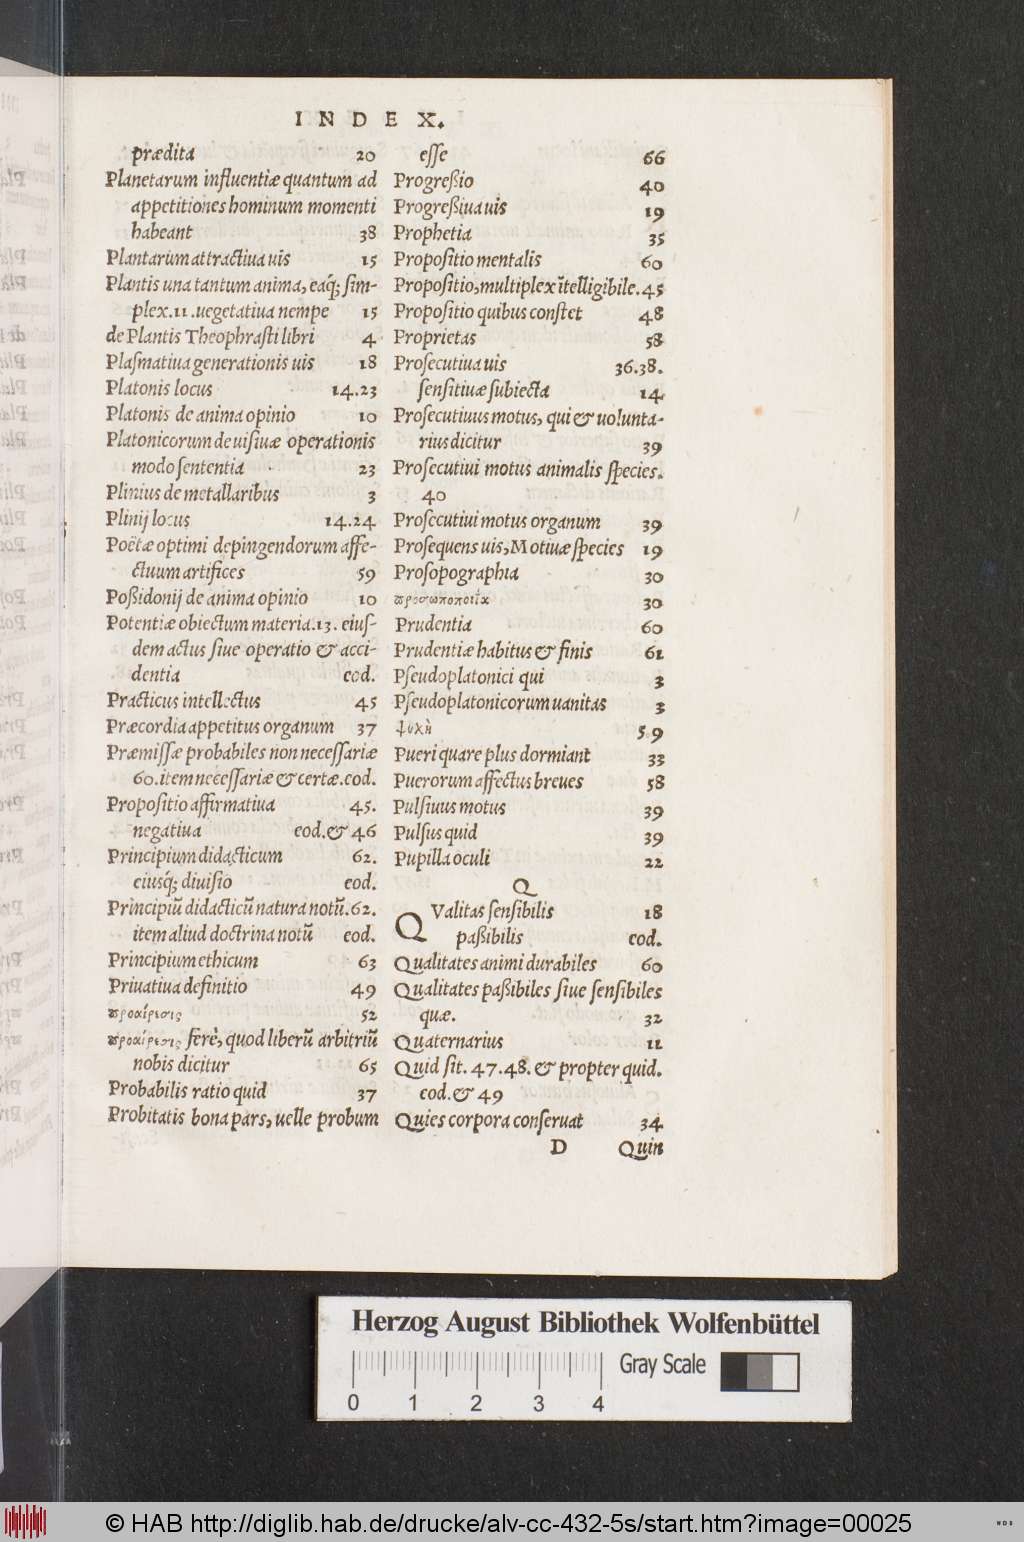 INDEX.
prædita 20
Planetarum influentiæ quantum ad
appetitiones hominum momenti
habeant 38
Plantarum attractiua uis 15
Plantis una tantum anima, eaq́; ſim-
plex.11.uegetatiua nempe 15
de Plantis Theophraſti libri 4
Plaſmatiua generationis uis 18
Platonis locus 14.23
Platonis de anima opinio 10
Platonicorum de uiſiuæ operationis
modo ſententia 23
Plinius de metallaribus 3
Plinij locus 14.24
Poëtæ optimi depingendorum affe-
ctuum artifices 59
Poßidonij de anima opinio 10
Potentiæ obiectum materia.13. eiuſ-
dem actus ſiue operatio & acci-
dentia eod.
Practicus intellectus 45
Præcordia appetitus organum 37
Præmiſſæ probabiles non neceſſariæ
60.item neceſſariæ & certæ.eod.
Propoſitio affirmatiua 45.
negatiua eod.& 46
Principium didacticum 62.
eiusq́; diuiſio eod.
Principiū didacticū natura notū.62.
item aliud doctrina notū eod.
Principium ethicum 63
Priuatiua definitio 49
προαίρεσις 52
προαίρεσις ferè, quod liberū arbitriū
nobis dicitur 65
Probabilis ratio quid 37
Probitatis bona pars, uelle probum
eſſe 66
Progreßio 40
Progreßiua uis 19
Prophetia 35
Propoſitio mentalis 60
Propoſitio, multiplex ītelligibile.45
Propoſitio quibus conſtet 48
Proprietas 58
Proſecutiua uis 36.38.
ſenſitiuæ ſubiecta 14
Proſecutiuus motus, qui & uolunta-
rius dicitur 39
Proſecutiui motus animalis ſpecies.
40
Proſecutiui motus organum 39
Proſequens uis, Motiuæ ſpecies 19
Proſopographia 30
προσωποποιΐα 30
Prudentia 60
Prudentiæ habitus & finis 61
Pſeudoplatonici qui 3
Pſeudoplatonicorum uanitas 3
ψυχὴ 5.9
Pueri quare plus dormiant 33
Puerorum affectus breues 58
Pulſiuus motus 39
Pulſus quid 39
Pupilla oculi 22
Q
QValitas ſenſibilis 18
paßibilis eod.
Qualitates animi durabiles 60
Qualitates paßibiles ſiue ſenſibiles
quæ. 32
Quaternarius 11
Quid ſit. 47.48. & propter quid.
eod.& 49
Quies corpora conſeruat 34
D Quin
Herzog August Bibliothek Wolfenbüttel
Gray Scale
0 1 2 3 4
© HAB http://diglib.hab.de/drucke/alv-cc-432-5s/start.htm?image=00025
WDB